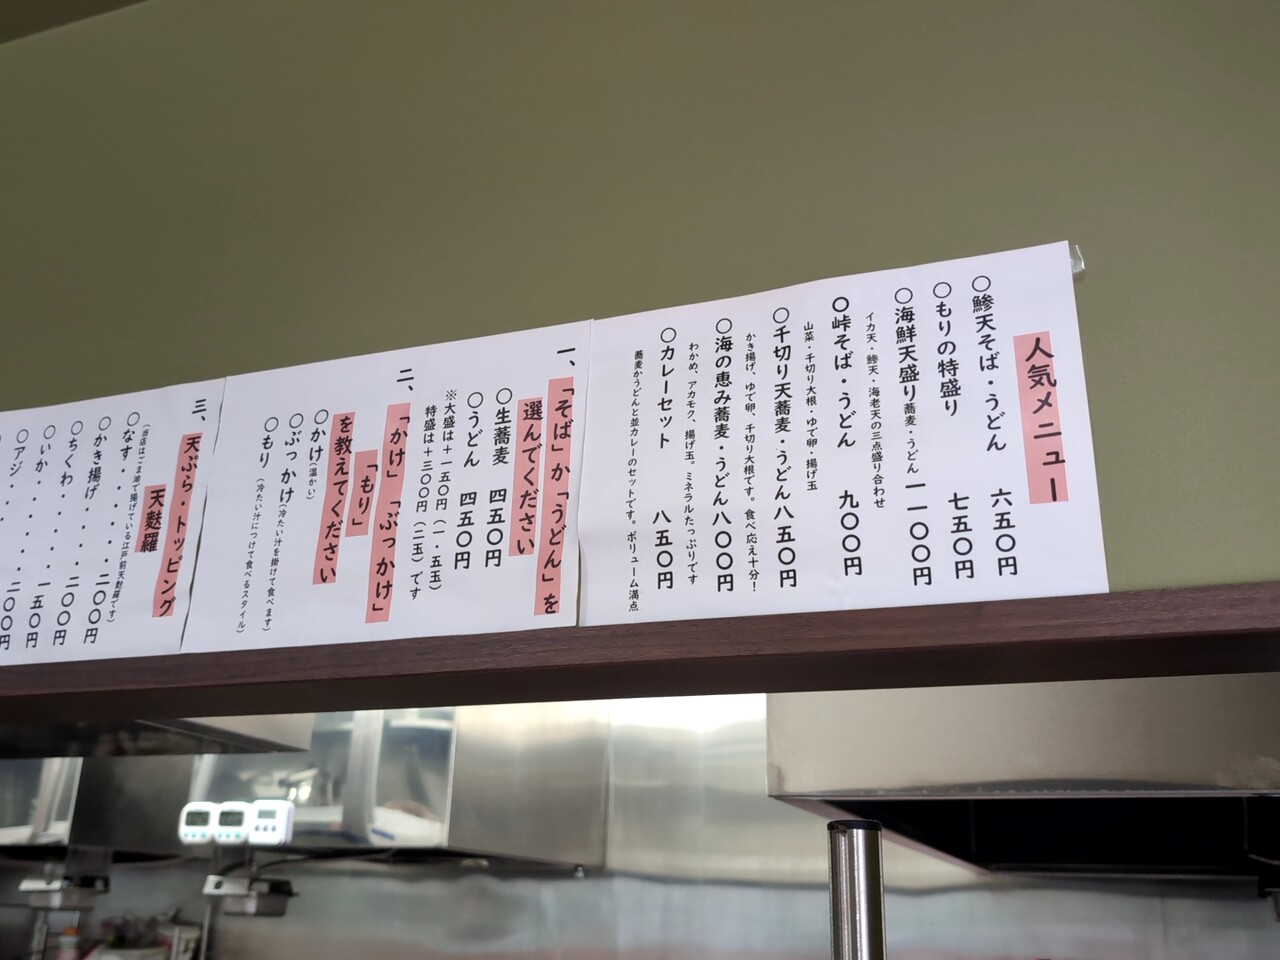 人気メニュー
○鯵天そば・うどん 六五〇円
○もりの特盛り 七五〇円
○海鮮天盛り蕎麦・うどん 一一〇〇円
イカ天・鯵天・海老天の三点盛り合わせ
○峠そば・うどん 九〇〇円
山菜・千切り大根・ゆで卵・揚げ玉
○千切り天蕎麦・うどん八五〇円
かき揚げ、ゆで卵、千切り大根です。食べ応え十分!
○海の恵み蕎麦・うどん八〇〇円
わかめ、アカモク、揚げ玉。ミネラルたっぷりです
○カレーセット 八五〇円
蕎麦かうどんと並カレーのセットです。ボリューム満点
一、「そば」か「うどん」を
選んでください
○生蕎麦 四五〇円
○うどん 四五〇円
※大盛は+一五〇円(一・五玉)
特盛は+三〇〇円(二玉)です
二、「かけ」「ぶっかけ」
「もり」
を教えてください
○かけ(温かい)
○ぶっかけ(冷たい汁を掛けて食べます)
○もり(冷たい汁につけて食べるスタイル)
三、天ぷら・トッピング
天麩羅
(当店はごま油で揚げている江戸前天麩羅です)
○なす・・・・・二〇〇円
○かき揚げ・・・二〇〇円
○ちくわ・・・・一五〇円
○いか・・・・・二〇〇円
○アジ